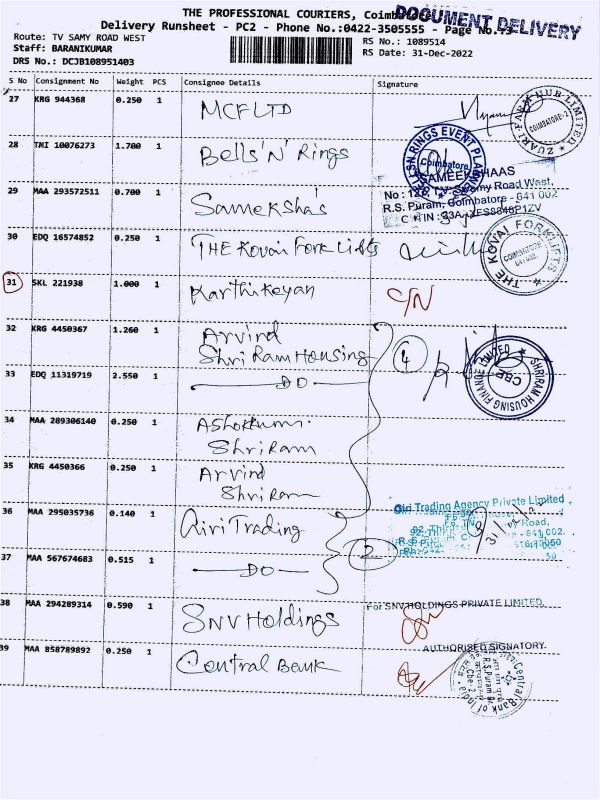 THE PROFESSIONAL COURIERS, Coimbatore
DOCUMENT DELIVERY
Delivery Runsheet - PC2 - Phone No.:0422-3505555 - Page No.
Route: TV SAMY ROAD WEST
RS No.: 1089514
Staff: BARANIKUMAR
RS Date: 31-Dec-2022
DRS No.: DCJB108951403
S No Consignment No Weight PCS Consignee Details Signature
27 KRG 944368 0.250 1 MCF LTD
ZUARI FARM HUB LIMITED
COIMBATORE-2
28 TMI 10076273 1.700 1 Bells 'N' Rings
RINGS EVENT
Coimbatore
SAMEEKSHAAS
29 MAA 293572511 0.700 1 Sameksha's
Swamy Road West,
R.S. Puram, Coimbatore - 641 002
30 EDQ 16574852 0.250 1 THE Kovai Fork Lifts
THE KOVAI FORKLIFTS
COIMBATORE
641 002.
31 SKL 221938 1.000 1 Karthikeyan C/N
32 KRG 4450367 1.260 1 Arvind
Shri Ram Housing
4
SHRIRAM HOUSING FINANCE LIMITED
CBE
33 EDQ 11319719 2.550 1 DO
34 MAA 289306140 0.250 1 Ashokkumar
Shriram
35 KRG 4450366 0.250 1 Arvind
Shriram
36 MAA 295035736 0.140 1 Giri Trading
Giri Trading Agency Private Limited
Road,
641 002.
31/12/22
2
37 MAA 567674683 0.515 1 DO
38 MAA 294289314 0.590 1 SNV Holdings
For SNV HOLDINGS PRIVATE LIMITED.
AUTHORISED SIGNATORY.
39 MAA 858789892 0.250 1 Central Bank
Central Bank of India
R.S. Puram
Cbe.2